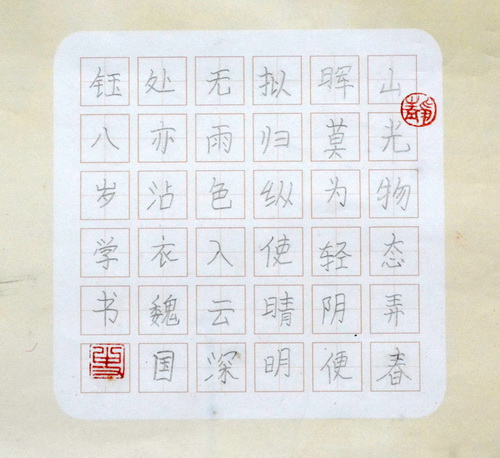 山光物态弄春
晖莫为轻阴便
拟归纵使晴明
无雨色入云深
处亦沾衣魏国
钰八岁学书